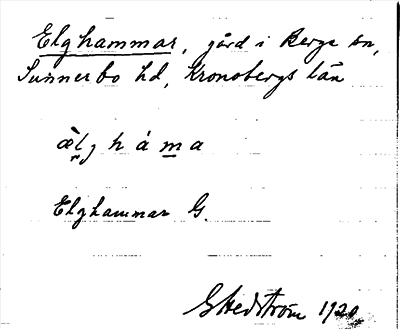 Elghammar, gård i Berga sn,
Sunnerbo hd, Kronobergs län
æ̀lg h á m a
Elghammar G.
G Hedström 1920